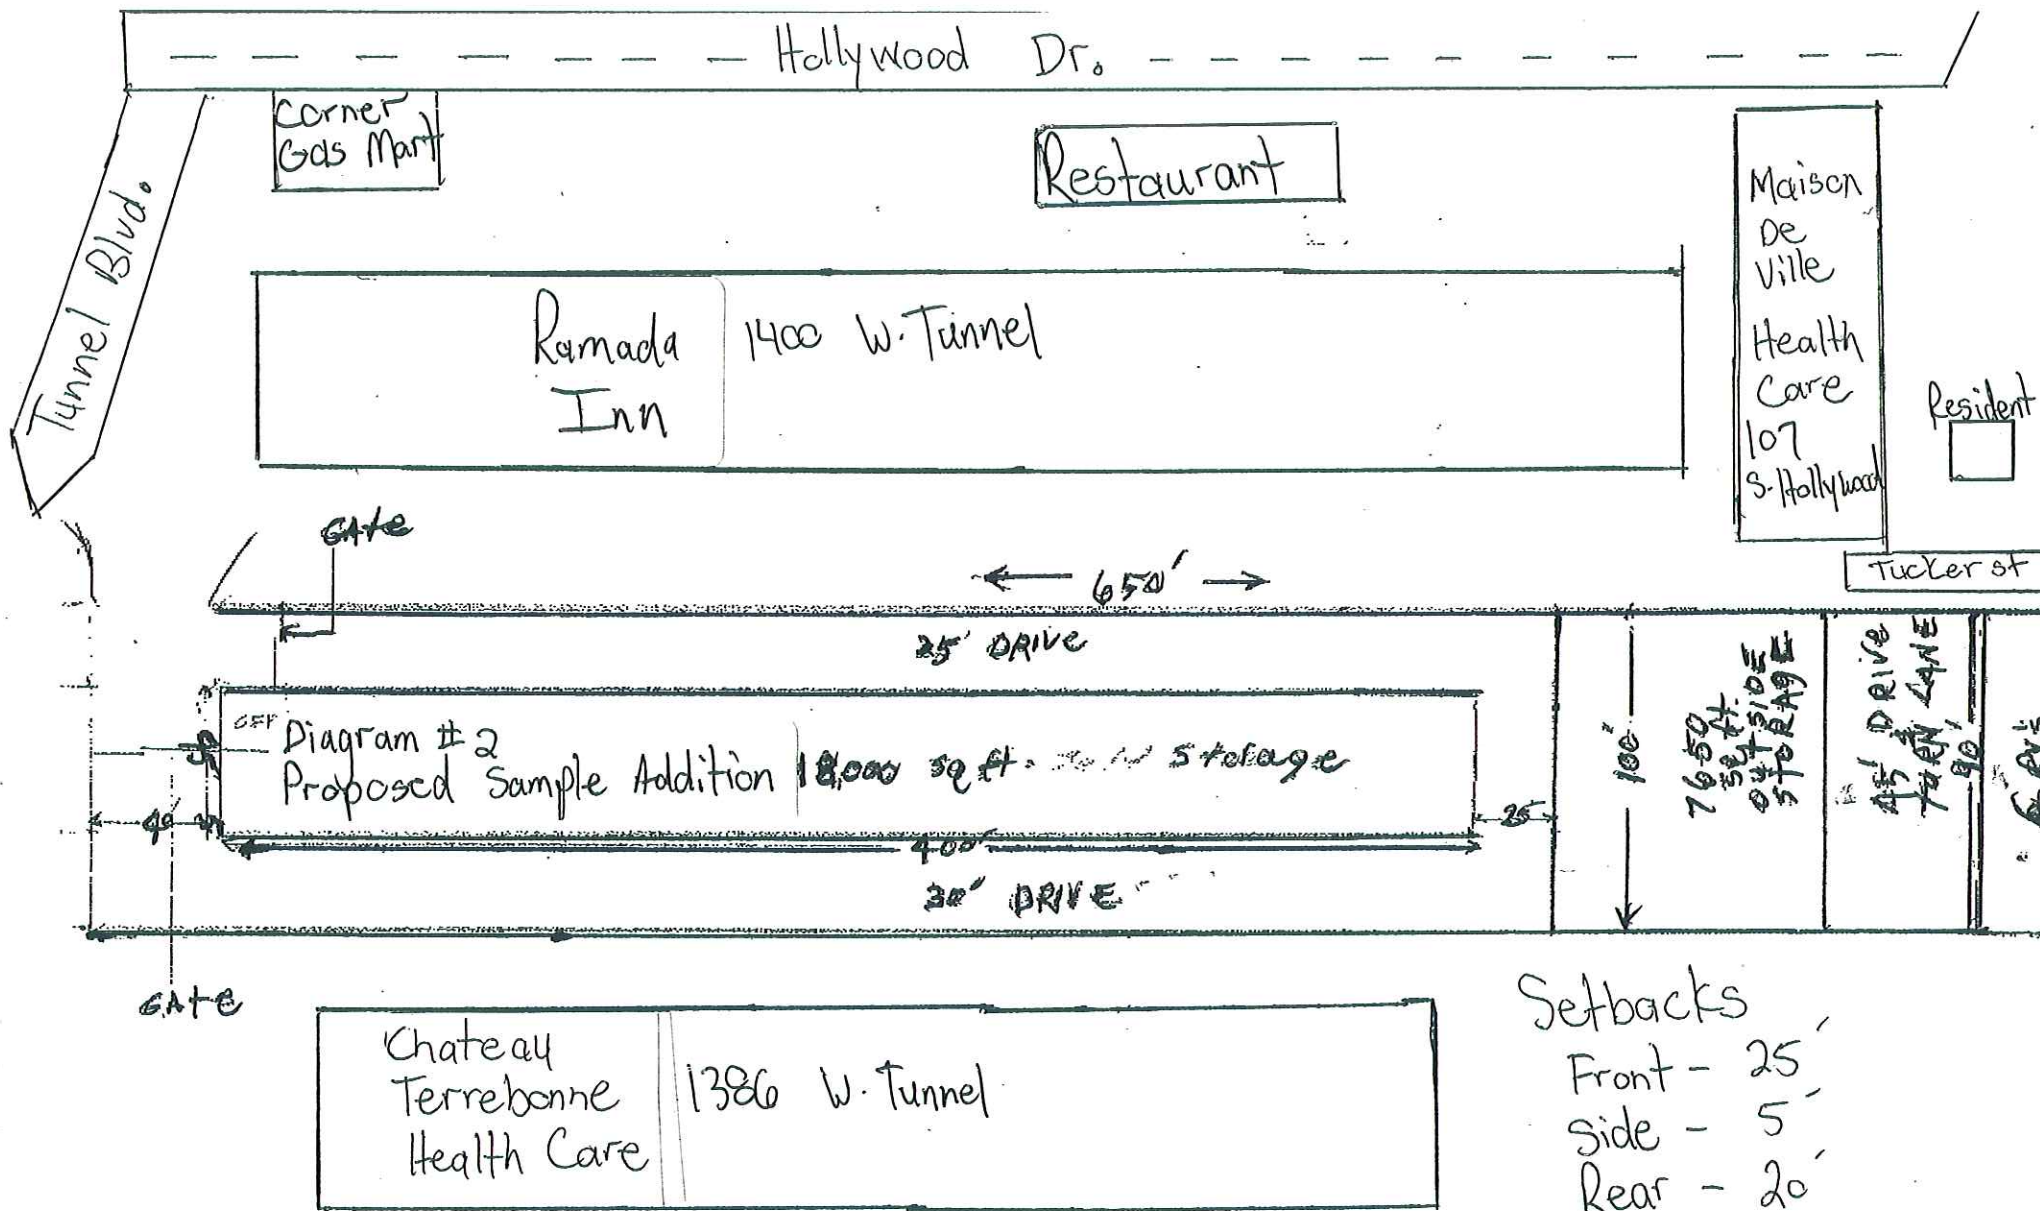 Hollywood Dr.
Corner
Gas Mart
Tunnel Blvd.
Restaurant
Maison
De
Ville
Health
Care
107
S. Hollywood
Resident
Ramada
Inn
1400 W. Tunnel
GAte
Tucker st
650'
25' DRIVE
OFF
Diagram #2
Proposed Sample Addition
18,000 sq ft.
Storage
40'
25'
400'
30' DRIVE
100'
7650
sq ft.
OUTSIDE
STORAGE
45' DRIVE
TURN LANE
90'
GAte
Chateau
Terrebonne
Health Care
1386 W. Tunnel
Setbacks
Front - 25'
Side - 5'
Rear - 20'